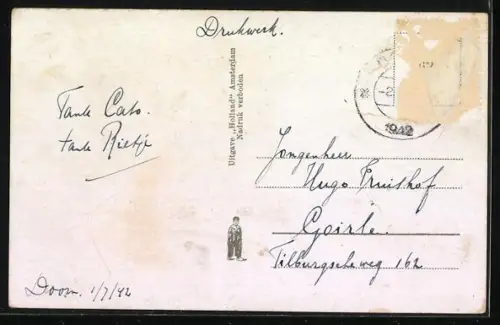 Drukwerk.
Tante Cato.
tante Rietje
Doorn. 1/7/42
Uitgave „Holland" Amsterdam
Nadruk verboden
1942
Jongenheer
Hugo Fruithof
Goirle.
Tilburgscheweg 162